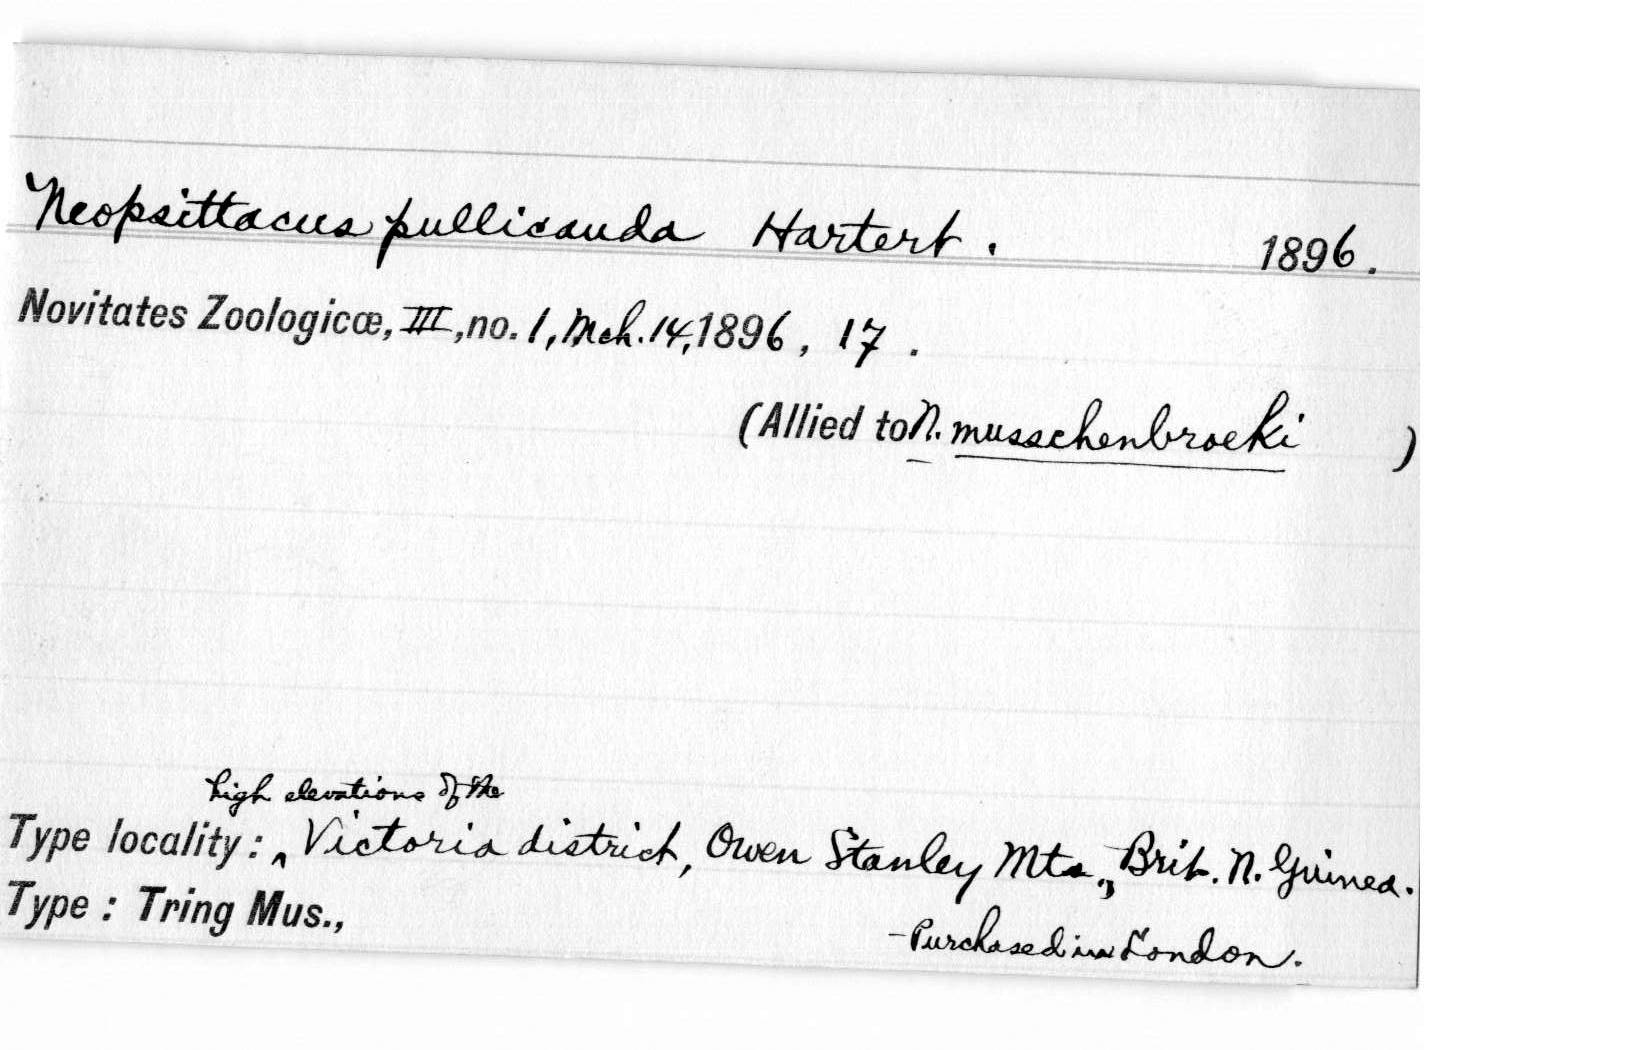 Neopsittacus pullicauda Hartert. 1896.
Novitates Zoologicæ, III, no. 1, Mch. 14, 1896, 17.
(Allied to N. musschenbroeki )
high elevations of the
Type locality: ^ Victoria district, Owen Stanley Mts., Brit. N. Guinea.
Type: Tring Mus.,
- Purchased in London.